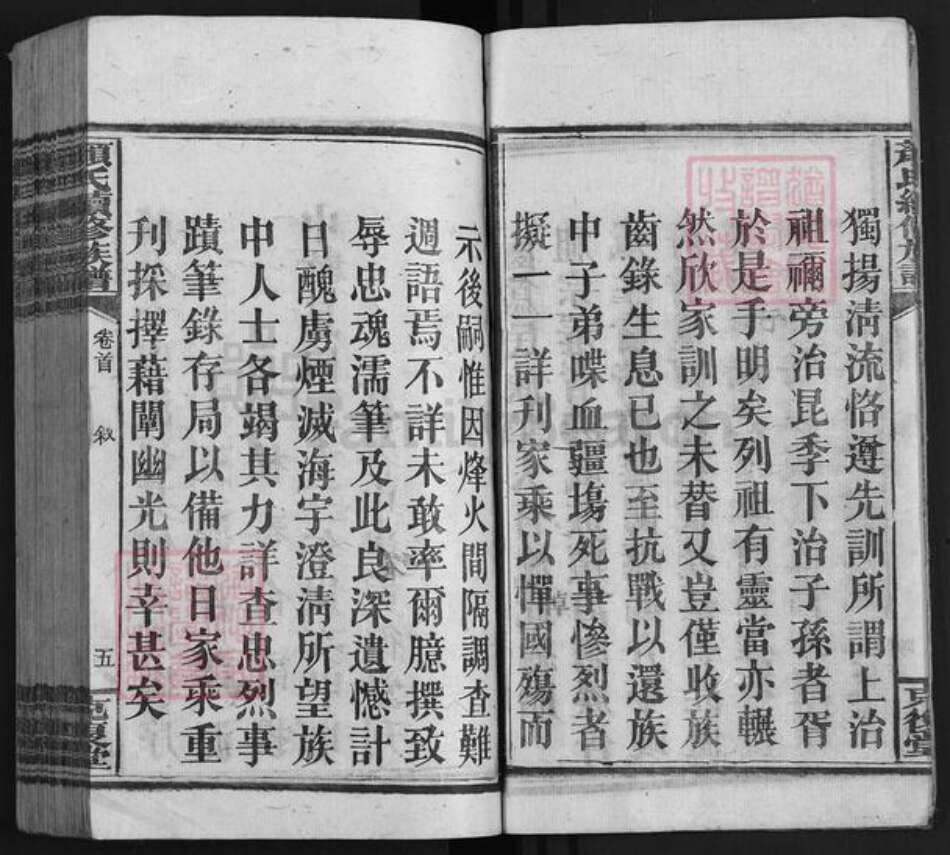 獨揚淸流恪遵先訓所謂上治
祖禰旁治昆季下治子孫者胥
於是乎明矣列祖有靈當亦囅
然欣家訓之未替又豈僅收族
齒錄生息已也至抗戰以還族
中子弟喋血疆塲死事慘烈者
擬一一詳刋家乘以憚國殤而
示後嗣惟因烽火間隔調查難
週語焉不詳未敢率爾臆撰致
辱忠魂濡筆及此良深遺憾計
日醜虜煙滅海宇澄淸所望族
中人士各竭其力詳查忠烈事
蹟筆錄存局以備他日家乘重
刋採擇藉闡幽光則幸甚矣
氏續修族譜
卷首
敘
五